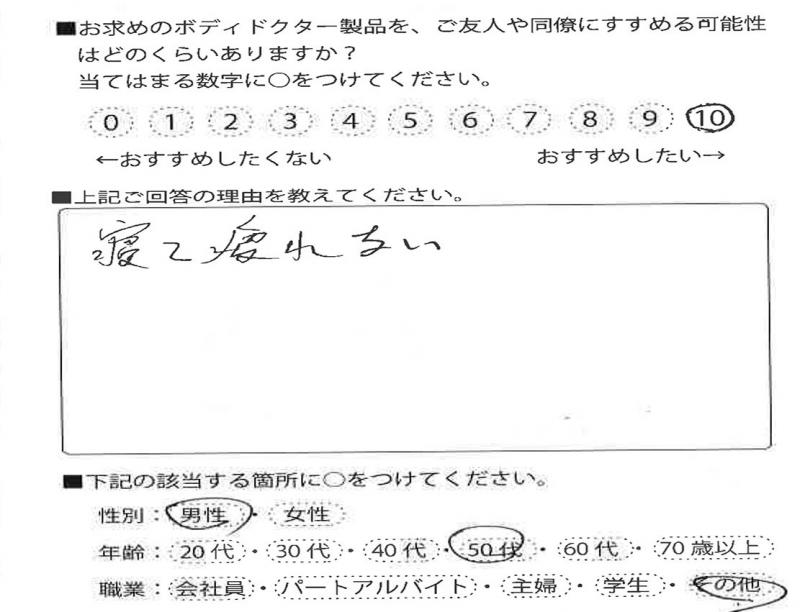 ■お求めのボディドクター製品を、ご友人や同僚にすすめる可能性
はどのくらいありますか？
当てはまる数字に○をつけてください。
0 1 2 3 4 5 6 7 8 9 10
←おすすめしたくない おすすめしたい→
■上記ご回答の理由を教えてください。
寝て疲れない
■下記の該当する箇所に○をつけてください。
性別：男性・女性
年齢：20代・30代・40代・50代・60代・70歳以上
職業：会社員・パートアルバイト・主婦・学生・その他